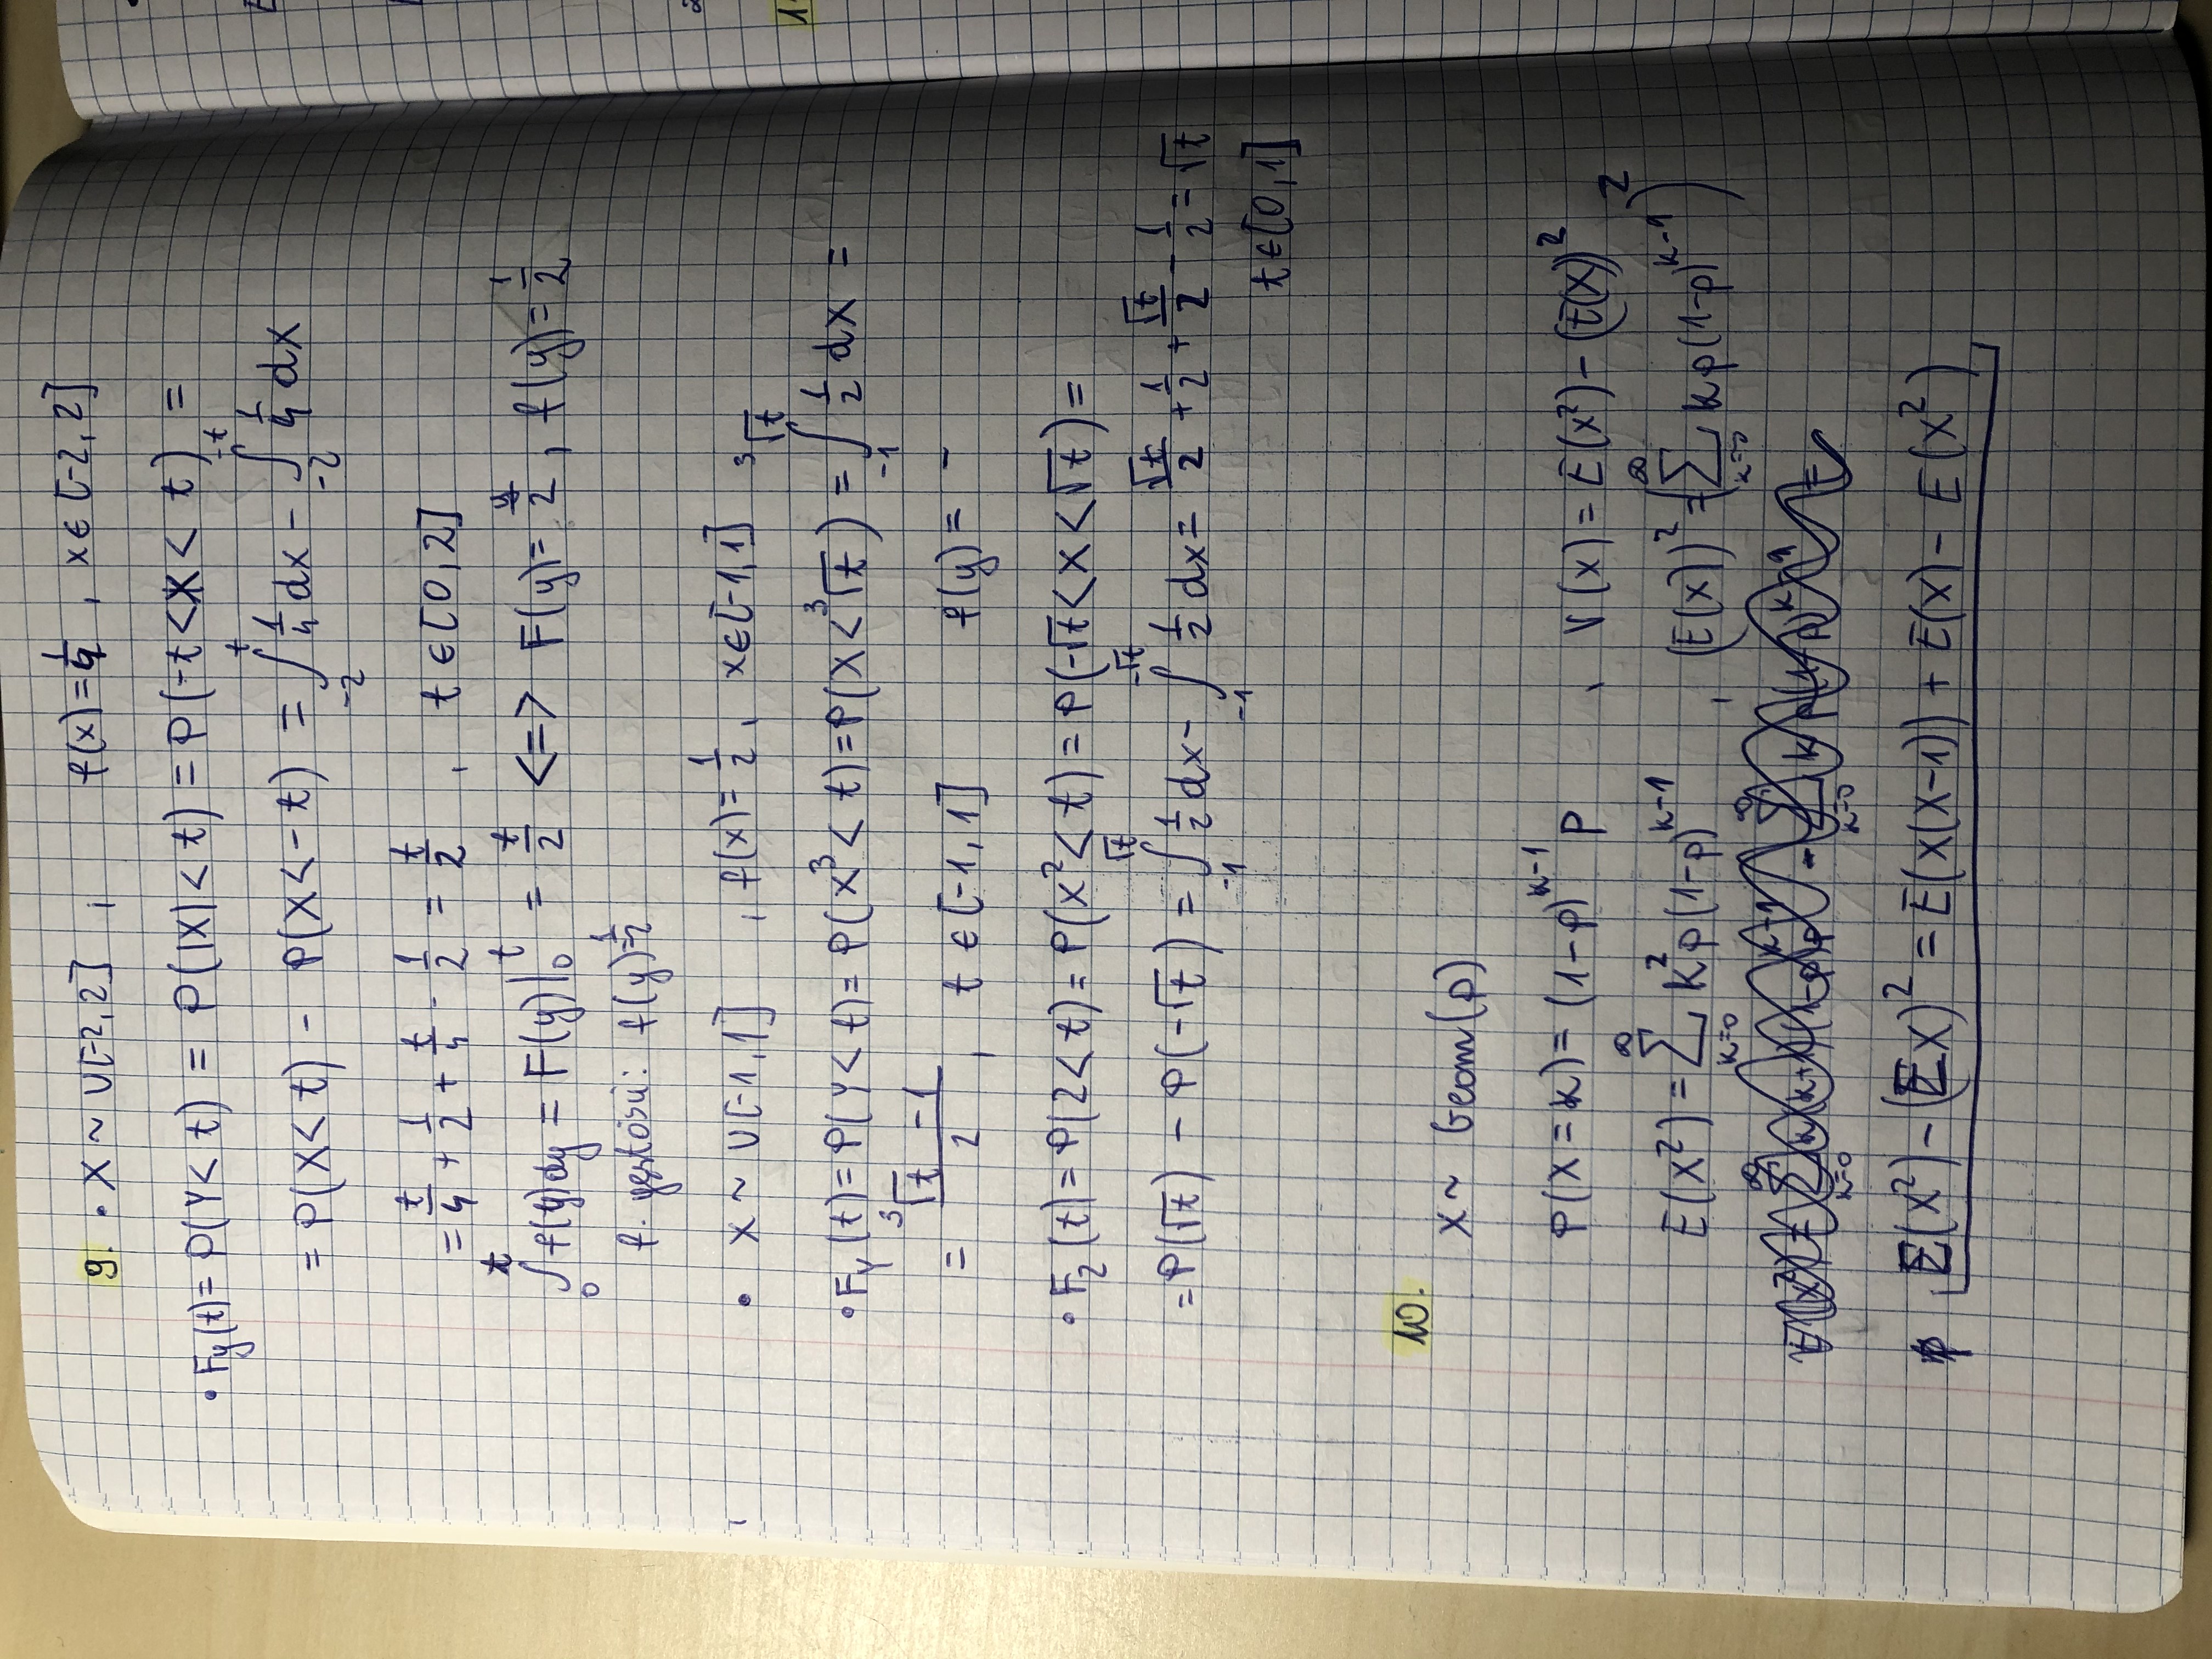 9. • X ~ U[-2,2] , f(x) = 1/4 , x ∈ [-2, 2]
• F_y(t) = P(Y < t) = P(|X| < t) = P(-t < X < t) =
= P(X < t) - P(X < -t) = ∫_{-2}^{t} 1/4 dx - ∫_{-2}^{-t} 1/4 dx
= t/4 + 1/2 + t/4 - 1/2 = t/2 , t ∈ [0, 2]
∫_0^t f(y)dy = F(y)|_0^t = t/2 <=> F(y) = y/2 , f(y) = 1/2
f. gęstości: f(y) = 1/2
• X ~ U[-1,1] , f(x) = 1/2 , x ∈ [-1,1]
• F_Y(t) = P(Y < t) = P(X³ < t) = P(X < ³√t) = ∫_{-1}^{³√t} 1/2 dx =
= (³√t - 1)/2 , t ∈ [-1, 1] f(y) = -
• F_Z(t) = P(Z < t) = P(X² < t) = P(-√t < X < √t) =
= P(√t) - P(-√t) = ∫_{-1}^{√t} 1/2 dx - ∫_{-1}^{-√t} 1/2 dx = √t/2 + 1/2 + √t/2 - 1/2 = √t
t ∈ [0,1]
10.
X ~ Geom(p)
P(X = k) = (1-p)^{k-1} p , V(X) = E(X²) - (E(X))²
E(X²) = ∑_{k=0}^{∞} k² p(1-p)^{k-1} , (E(X))² = (∑_{k=0}^{∞} k p(1-p)^{k-1})²
E(X²) - (EX)² = E(X(X-1)) + E(X) - E(X²)